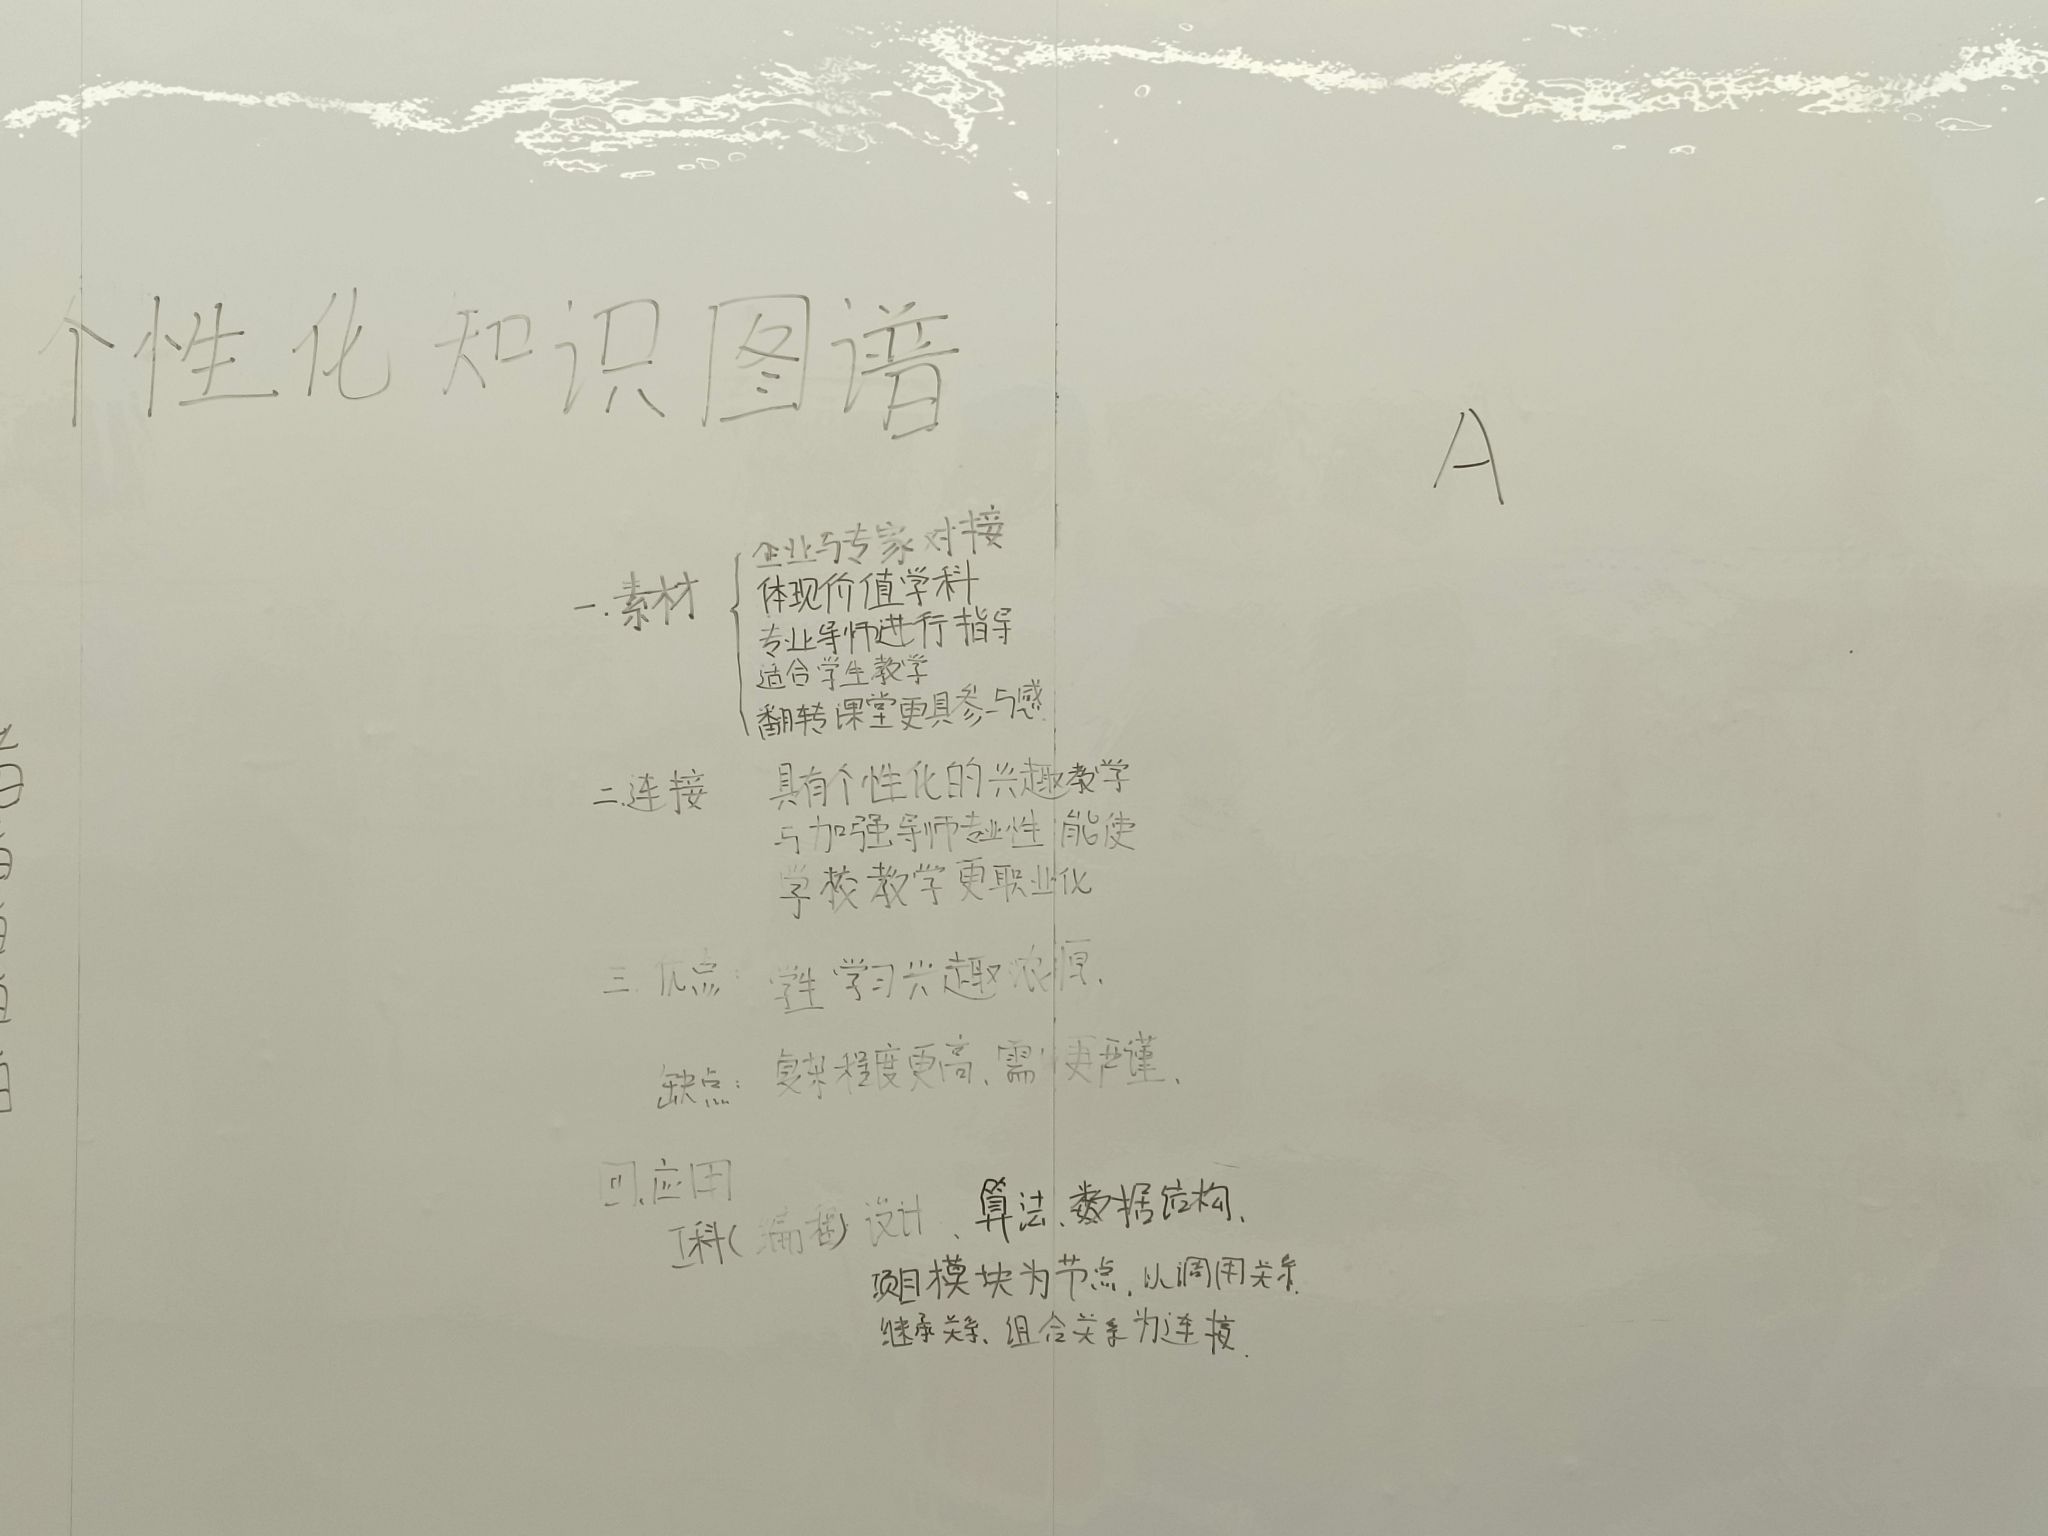 个性化知识图谱
A
一.素材
企业与专家对接
体现价值学科
专业导师进行指导
适合学生教学
翻转课堂更具参与感
二.连接
具有个性化的兴趣教学
与加强导师专业性能使
学校教学更职业化
三.优点: 学生学习兴趣浓厚.
缺点: 复杂程度更高、需 更严谨.
四.应用
工科(编程) 设计、算法、数据结构.
项目模块为节点.以调用关系.
继承关系、组合关系为连接.